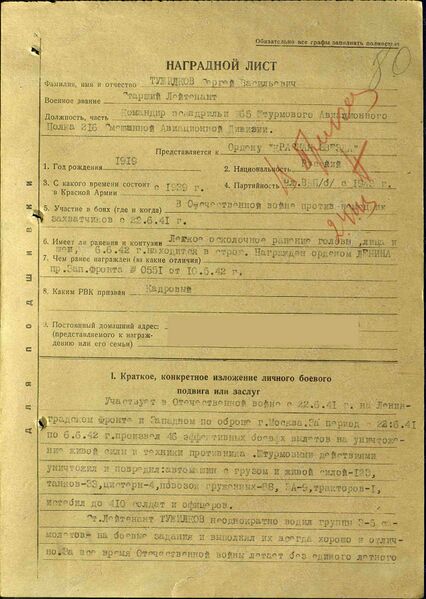 Обязательно все графы заполнять полностью
80
НАГРАДНОЙ ЛИСТ
Фамилия, имя и отчество ТУЖИЛКОВ Сергей Васильевич
Военное звание Старший Лейтенант
Должность, часть Командир эскадрильи 765 Штурмового Авиационного
Полка 216 Смешанной Авиационной Дивизии.
Представляется к Ордену "КРАСНАЯ ЗВЕЗДА"
1. Год рождения 1919 2. Национальность Русский
3. С какого времени состоит в Красной Армии с 1939 г. 4. Партийность
5. Участие в боях (где и когда) В Отечественной войне против
захватчиков с 22.6.41 г.
6. Имеет ли ранения и контузии Легкое осколочное ранение головы, лица и
шеи, 6.6.42 г. находится в строю. Награжден орденом ЛЕНИНА
7. Чем ранее награжден (за какие отличия)
пр.Зап.фронта № 0551 от 10.5.42 г.
8. Каким РВК призван Кадровый
9. Постоянный домашний адрес:
(представляемого к награждению или его семьи)
для подшивки
I. Краткое, конкретное изложение личного боевого
подвига или заслуг
Участвует в Отечественной войне с 22.6.41 г. на Ленин-
градском фронте и Западном по обороне г.Москва. За период с 22.6.41
по 6.6.42 г. произвел 46 эффективных боевых вылетов на уничтоже-
ние живой силы и техники противника. Штурмовыми действиями
уничтожил и повредил: автомашин с грузом и живой силой-123,
танков-33, цистерн-4, повозок груженных-88, ЗА-9, тракторов-1,
истребил до 410 солдат и офицеров.
Ст.Лейтенант ТУЖИЛКОВ неоднократно водил группы 3-5 са-
молетов на боевые задания и выполнял их всегда хорошо и отлич-
но. За все время Отечественной войны летает без единого летного